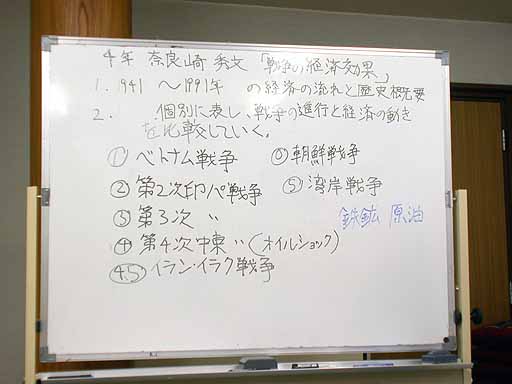 4年 奈良崎 秀文 「戦争の経済効果」
1. 1941 ～1991年 の経済の流れと歴史概要
2. 個別に表し、戦争の進行と経済の動き
を比較していく。
① ベトナム戦争 ⓪ 朝鮮戦争
② 第2次印パ戦争 ⑤ 湾岸戦争
③ 第3次 〃
鉄鉱 原油
④ 第4次中東 〃 (オイルショック)
4.5 イラン・イラク戦争